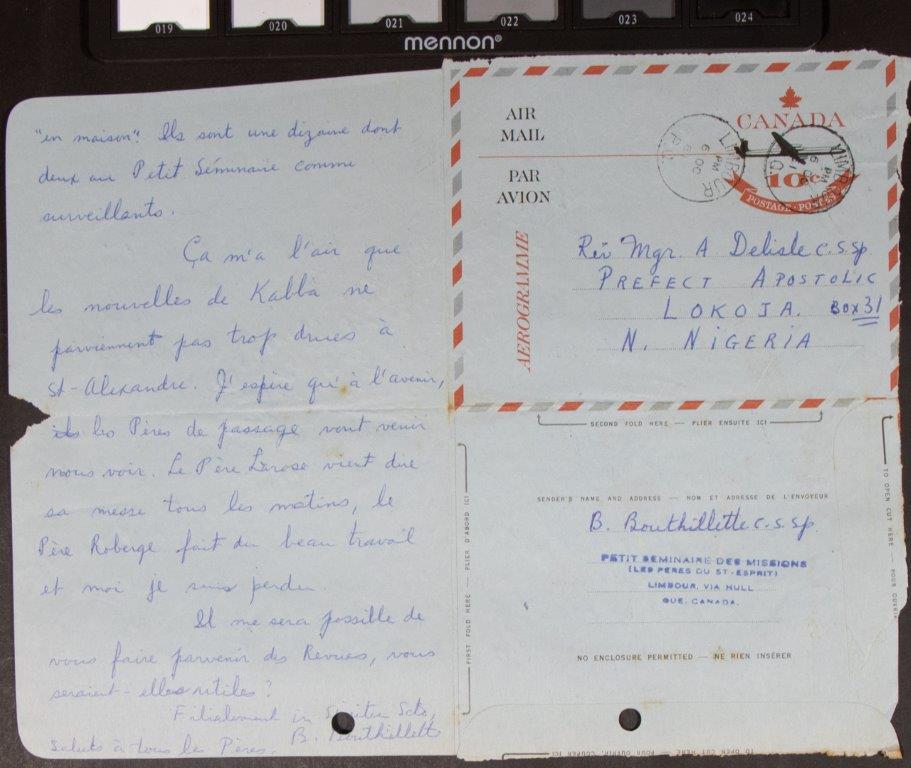 019 020 021 022 023 024
mennon®
"en maison". Ils sont une dizaine dont
deux au Petit Séminaire comme
surveillants.
Ça m'a l'air que
les nouvelles de Kabba ne
parviennent pas trop drues à
St-Alexandre. J'espère qu'à l'avenir,
les Pères de passage vont venir
nous voir. Le Père Larose vient dire
sa messe tous les matins, le
Père Roberge fait du beau travail
et moi je suis perdu.
Il me sera possible de
vous faire parvenir des Revues, vous
seraient-elles utiles?
Filialement in Spiritu Scto,
B. Bouthillette
Saluts à tous les Pères.
AIR
MAIL
PAR
AVION
AEROGRAMME
CANADA
10¢
POSTAGE-POSTES
LIMBOUR
PM
6 OC
P.Q.
LIMBOUR
PM
6 OC
P.Q.
Rév Mgr. A Delisle c.s.sp
PREFECT APOSTOLIC
LOKOJA. BOX 31
N. NIGERIA
SECOND FOLD HERE — PLIER ENSUITE ICI
SENDER'S NAME AND ADDRESS — NOM ET ADRESSE DE L'ENVOYEUR
B. Bouthillette c.s.sp.
PETIT SEMINAIRE DES MISSIONS
(LES PERES DU ST-ESPRIT)
LIMBOUR, VIA HULL
QUE. CANADA.
NO ENCLOSURE PERMITTED — NE RIEN INSÉRER
FIRST FOLD HERE — PLIER D'ABORD ICI
TO OPEN CUT HERE — POUR OUVRIR
TO OPEN CUT HERE — POUR OUVRIR, COUPER ICI